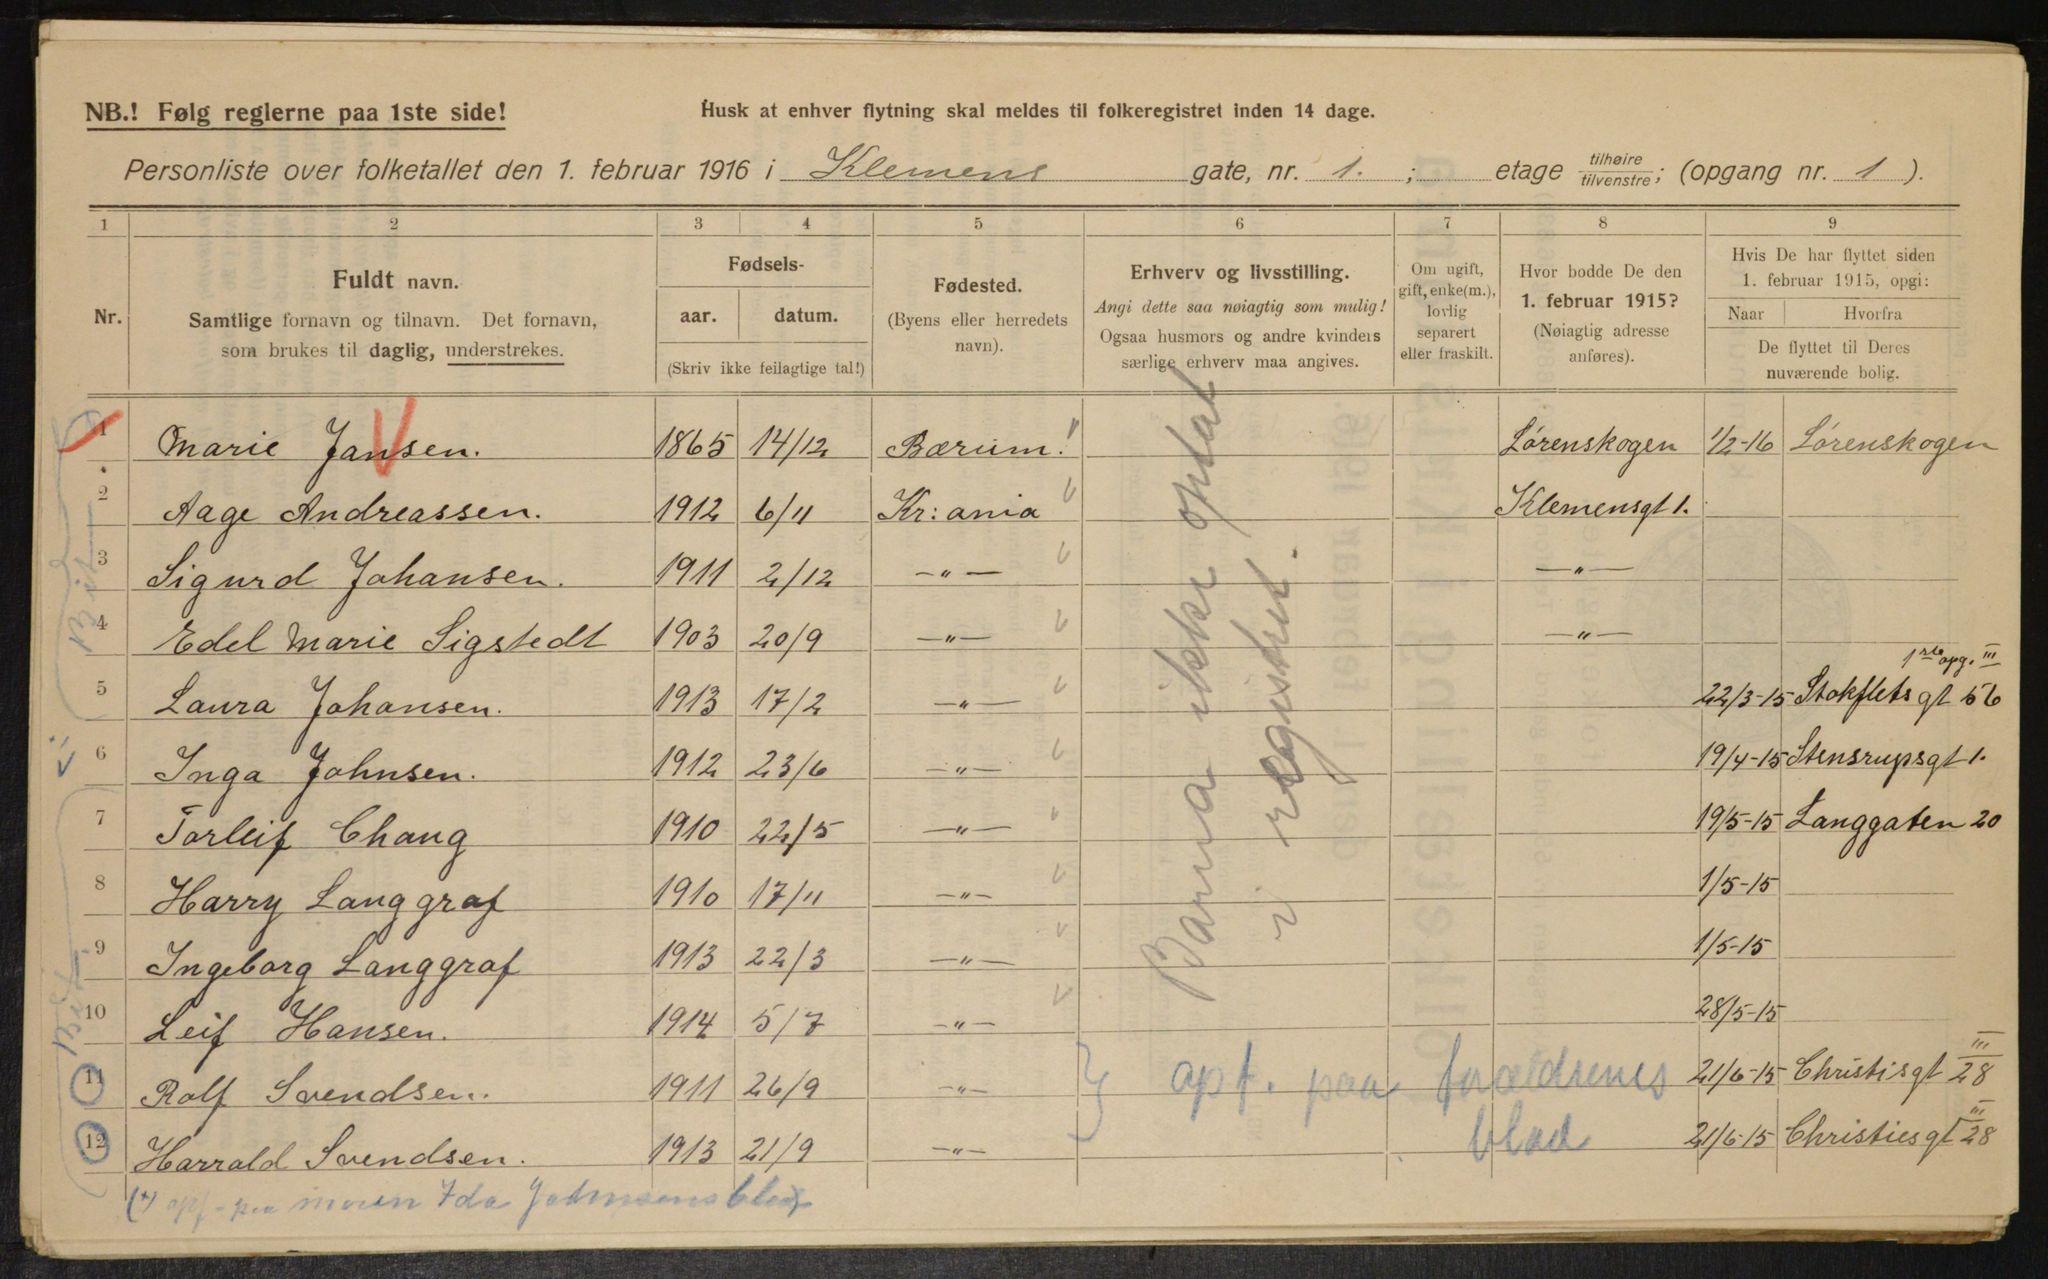 NB.! Følg reglerne paa 1ste side!
Husk at enhver flytning skal meldes til folkeregistret inden 14 dage.
Personliste over folketallet den 1. februar 1916 i Klemens gate, nr. 1. ; etage tilhøire tilvenstre; (opgang nr. 1 ).
1 2 3 4 5 6 7 8 9
Nr.
Fuldt navn.
Samtlige fornavn og tilnavn. Det fornavn,
som brukes til daglig, understrekes.
Fødsels-
aar. datum.
(Skriv ikke feilagtige tal!)
Fødested.
(Byens eller herredets
navn).
Erhverv og livsstilling.
Angi dette saa nøiagtig som mulig!
Ogsaa husmors og andre kvinders
særlige erhverv maa angives.
Om ugift,
gift, enke(m.),
lovlig
separert
eller fraskilt.
Hvor bodde De den
1. februar 1915?
(Nøiagtig adresse
anføres).
Hvis De har flyttet siden
1. februar 1915, opgi:
Naar Hvorfra
De flyttet til Deres
nuværende bolig.
1 Marie Jansen. 1865 14/12 Bærum. Lørenskogen 1/2-16 Lørenskogen
2 Aage Andreassen. 1912 6/11 Kr:ania Klemensgt 1.
3 Sigurd Johansen. 1911 2/12 —"— —"—
4 Edel Marie Sigstedt 1903 20/9 —"— —"—
1ste opg. III
5 Laura Johansen. 1913 17/2 —"— 22/3-15 Stokflets gt 56
6 Inga Johnsen. 1912 23/6 —"— 19/4-15 Stensrupsgt 1.
7 Torleif Chang 1910 22/5 —"— 19/5-15 Langgaten 20
8 Harry Langgraf 1910 17/11 —"— 1/5-15
9 Ingeborg Langgraf 1913 22/3 —"— 1/5-15
10 Leif Hansen. 1914 5/7 —"— 28/5-15
11 Rolf Svendsen. 1911 26/9 —"— 21/6-15 Christisgt 28 III
12 Harrald Svendsen. 1913 21/9 —"— 21/6-15 Christiesgt 28 III
Barna ikke optat
i registret.
opf. paa forældrenes
blad
opf - paa moren Ida Johnsens blad